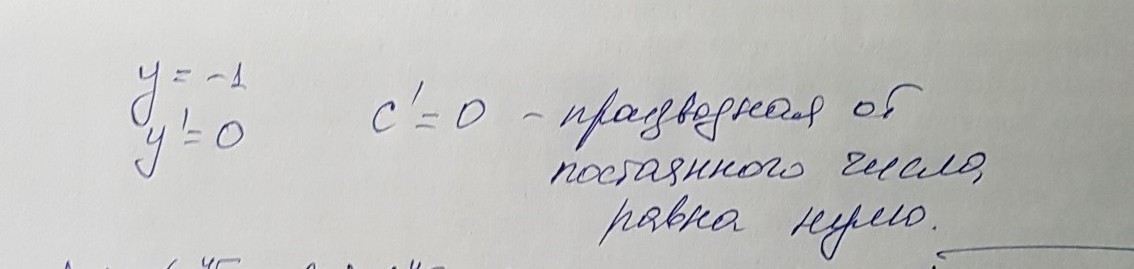 y = -1
y' = 0
c' = 0 - производная от
постоянного числа,
равна нулю.